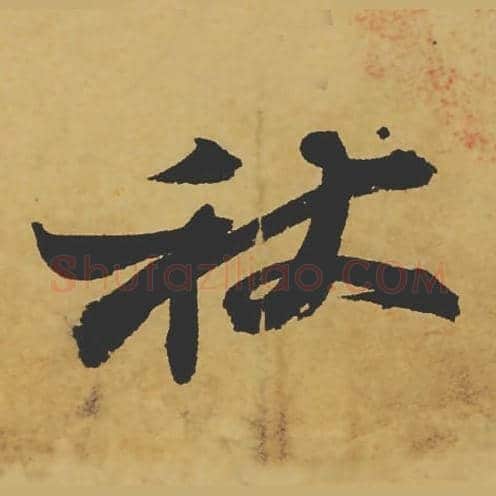 祓
Shufaziliao.COM